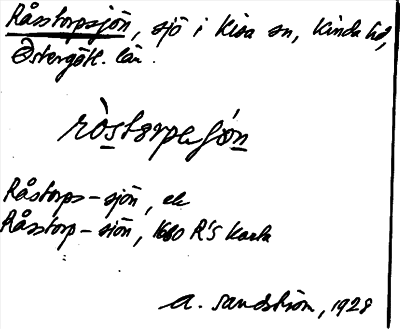 Råsstorpsjön, sjö i Kisa sn, Kinda hd,
Östergötl. län.
ròstorpsjön
Råstorps-sjön, ek
Råsstorp-sjön, 1680 R'S karta
A. Sandström, 1928